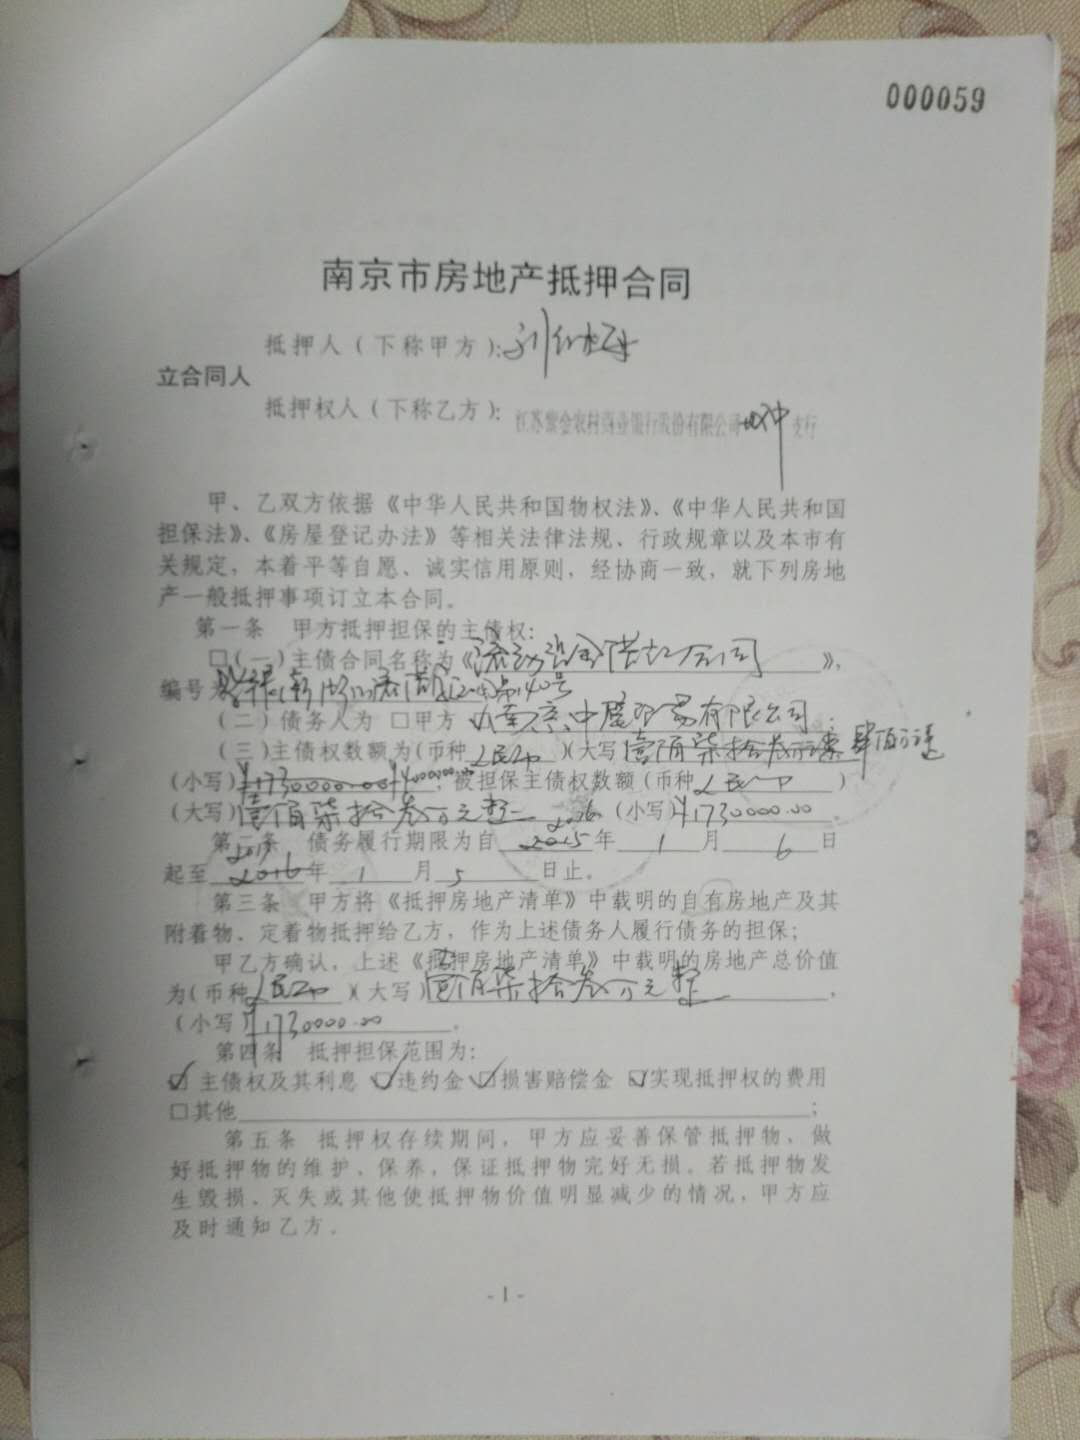 000059
南京市房地产抵押合同
抵押人（下称甲方）：刘红梅
立合同人
抵押权人（下称乙方）：江苏紫金农村商业银行股份有限公司 支行
甲、乙双方依据《中华人民共和国物权法》、《中华人民共和国
担保法》、《房屋登记办法》等相关法律法规、行政规章以及本市有
关规定，本着平等自愿、诚实信用原则，经协商一致，就下列房地
产一般抵押事项订立本合同。
第一条 甲方抵押担保的主债权：
□(一)主债合同名称为《流动资金借款合同》，
编号为 第140号
(二)债务人为 □甲方 南京中 贸易有限公司；
(三)主债权数额为(币种人民币)(大写壹佰柒拾叁万元整 肆佰万元
(小写)¥1730000.00 ¥4000000.00，被担保主债权数额(币种人民币)
(大写)壹佰柒拾叁万元整 (小写)¥1730000.00。
2016
第二条 债务履行期限为自2015年1月6日
2017
起至2016年1月5日止。
第三条 甲方将《抵押房地产清单》中载明的自有房地产及其
附着物、定着物抵押给乙方，作为上述债务人履行债务的担保；
甲乙方确认，上述《抵押房地产清单》中载明的房地产总价值
为(币种人民币)(大写)壹佰柒拾叁万元整，
(小写)¥1730000.00。
第四条 抵押担保范围为：
☑主债权及其利息 ☑违约金 ☑损害赔偿金 ☑实现抵押权的费用
□其他；
第五条 抵押权存续期间，甲方应妥善保管抵押物、做
好抵押物的维护、保养，保证抵押物完好无损。若抵押物发
生毁损、灭失或其他使抵押物价值明显减少的情况，甲方应
及时通知乙方。
- 1 -